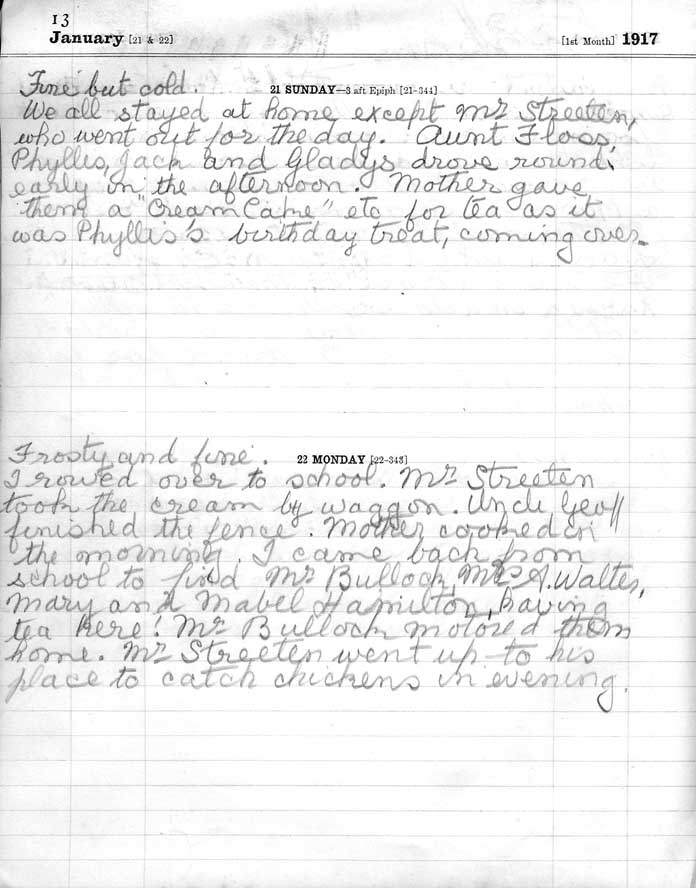 13
January [21 & 22] [1st Month] 1917
Fine but cold. 21 SUNDAY—3 aft Epiph [21-344]
We all stayed at home except Mr Streeten,
who went out for the day. Aunt Floss,
Phyllis, Jack and Gladys drove round
early in the afternoon. Mother gave
them a "Cream Cake" etc for tea as it
was Phyllis's birthday treat, coming over.
Frosty and fine. 22 MONDAY [22-343]
I rowed over to school. Mr Streeten
took the cream by waggon. Uncle Geoff
finished the fence. Mother cooked in
the morning. I came back from
school to find Mr Bullock, Mrs A. Walter,
Mary and Mabel Hamilton, having
tea here! Mr Bullock motored them
home. Mr Streeten went up to his
place to catch chickens in evening.